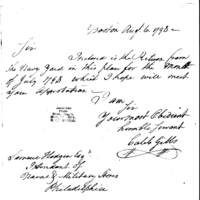 Boston Augt. 6. 1798 -
Sir
Inclosed is the Return from
the Navy Yard in this place for the month
of July 1798 which I hope will meet
your Approbation
I am
Sir
Your most Obedient
humble Servant
Caleb Gibbs
Hodgdon Esqr.
Intendant of
Naval & Military Stores
Philadelphia